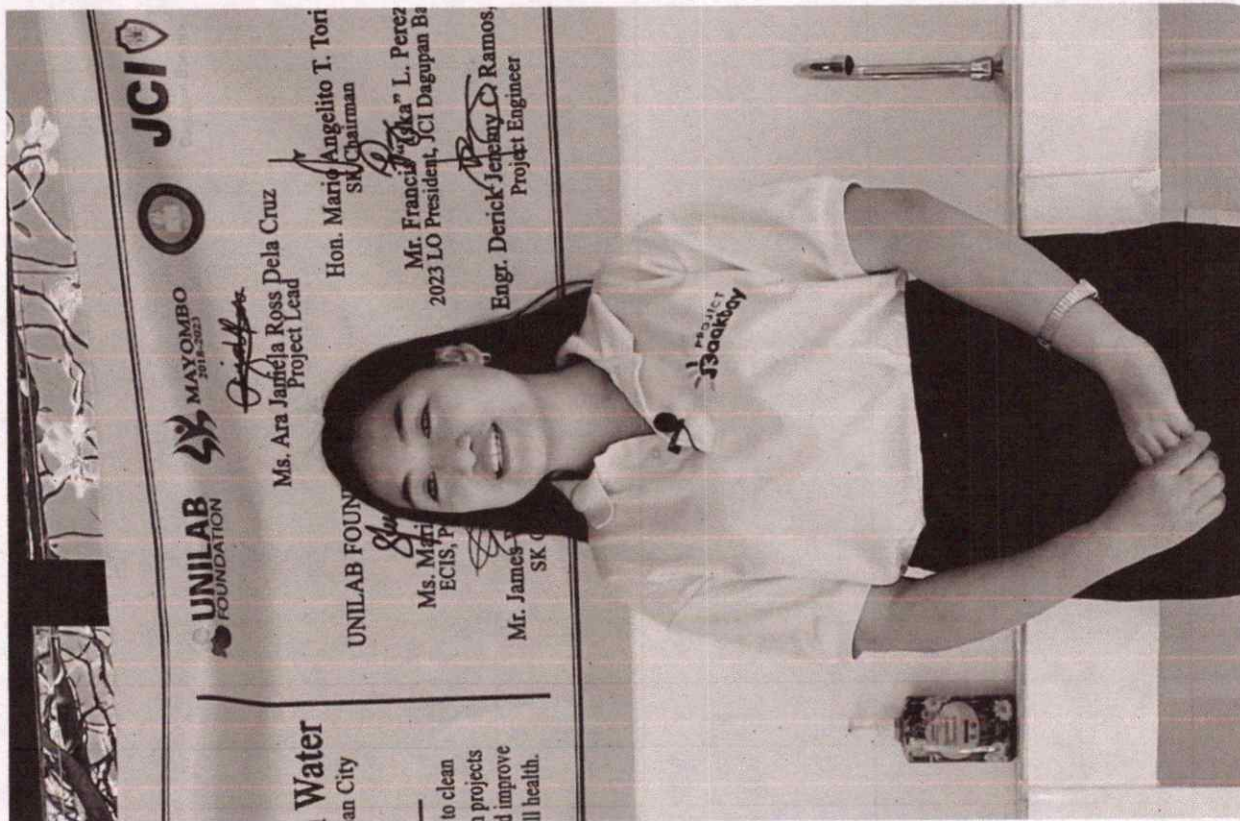 n Water
an City
to clean
n projects
d improve
ll health.
UNILAB
FOUNDATION
MAYOMBO
2018-2023
JCI
Ms. Ara Jamela Ross Dela Cruz
Project Lead
UNILAB FOUN
Hon. Mario Angelito T. Tori
SK Chairman
Ms. Mari
ECIS, P
Mr. Francis "Iska" L. Perez
2023 LO President, JCI Dagupan Ba
Mr. James
SK
Engr. Derick Jeremy C. Ramos,
Project Engineer
PROJECT
Baakbay